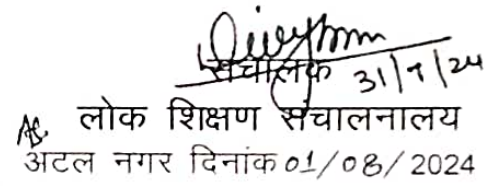 संचालक 31/7/24
लोक शिक्षण संचालनालय
अटल नगर दिनांक 01/08/2024